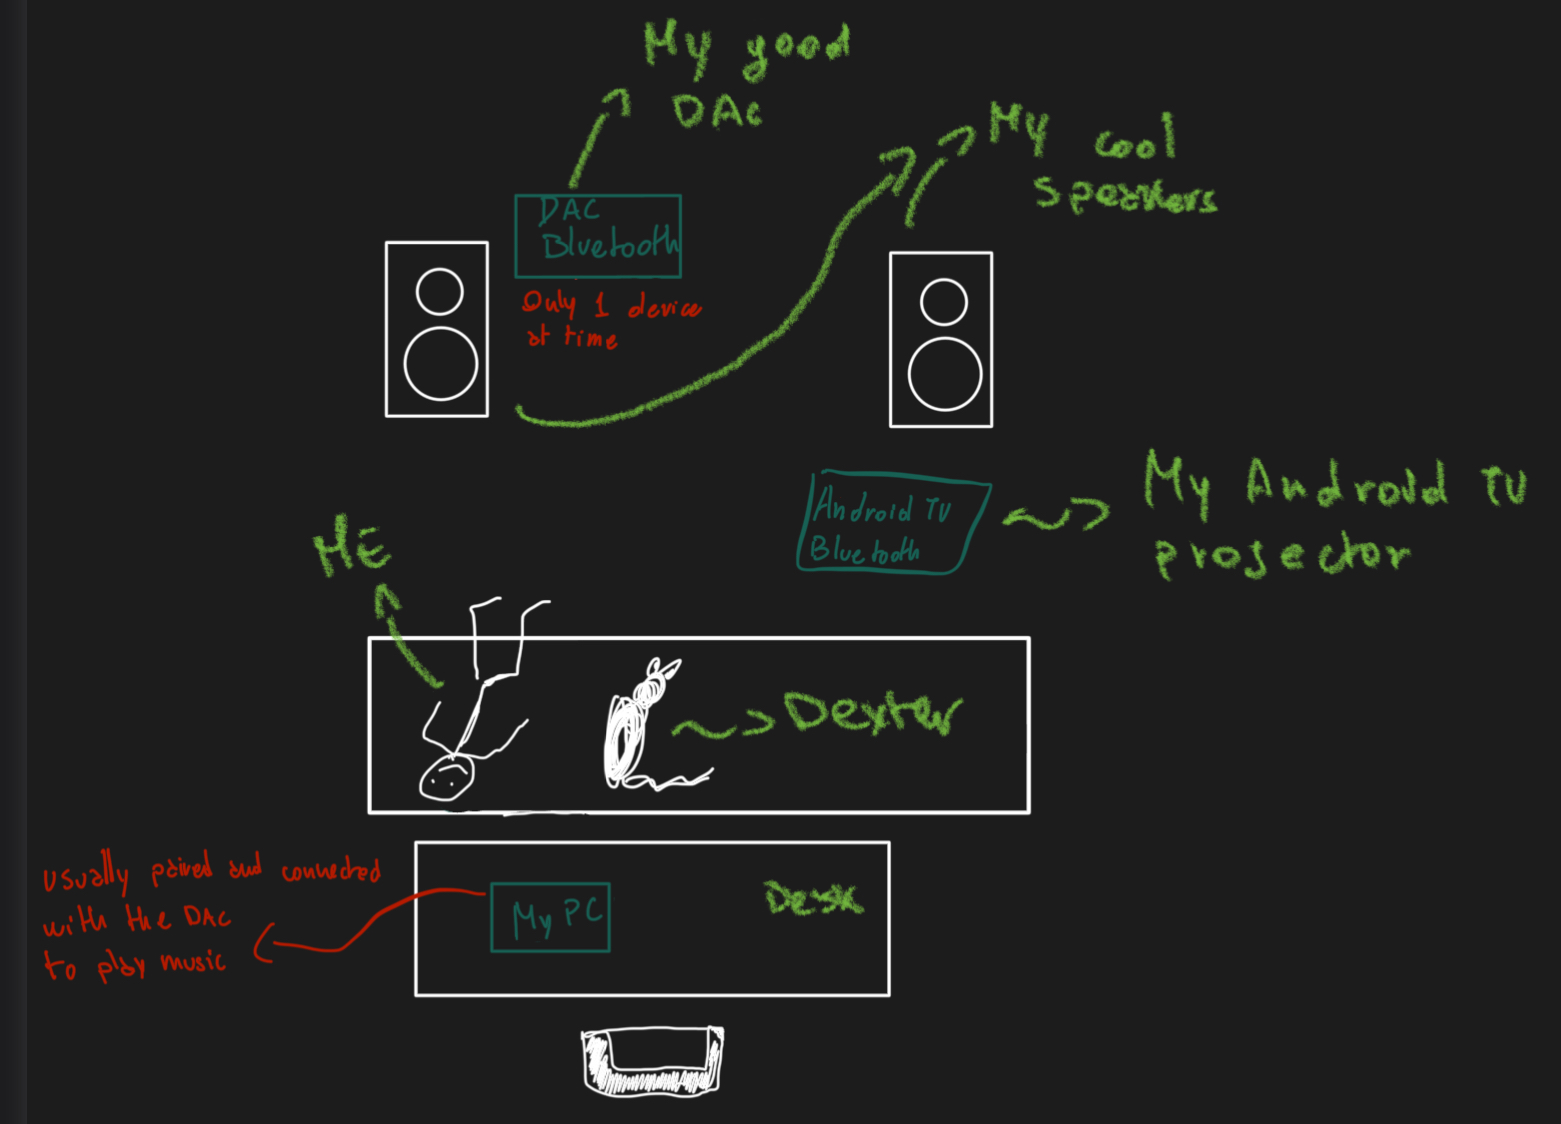 My good
DAC
My cool
speakers
DAC
Bluetooth
Only 1 device
at time
My Android TV
projector
Android TV
Bluetooth
ME
Dexter
Usually paired and connected
with the DAC
to play music
My PC
Desk